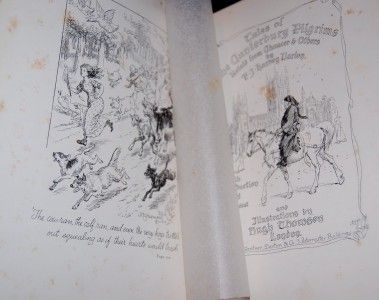 The cow ran, the calf ran, and even the very hogs trotted
out squealing as if their hearts would break
Tales of
Canterbury Pilgrims
Retold from Chaucer & Others
by
F. J. Harvey Darton
and
Illustrations by
Hugh Thomson
London.
Gardner, Darton & Co. 3 Paternoster Buildings